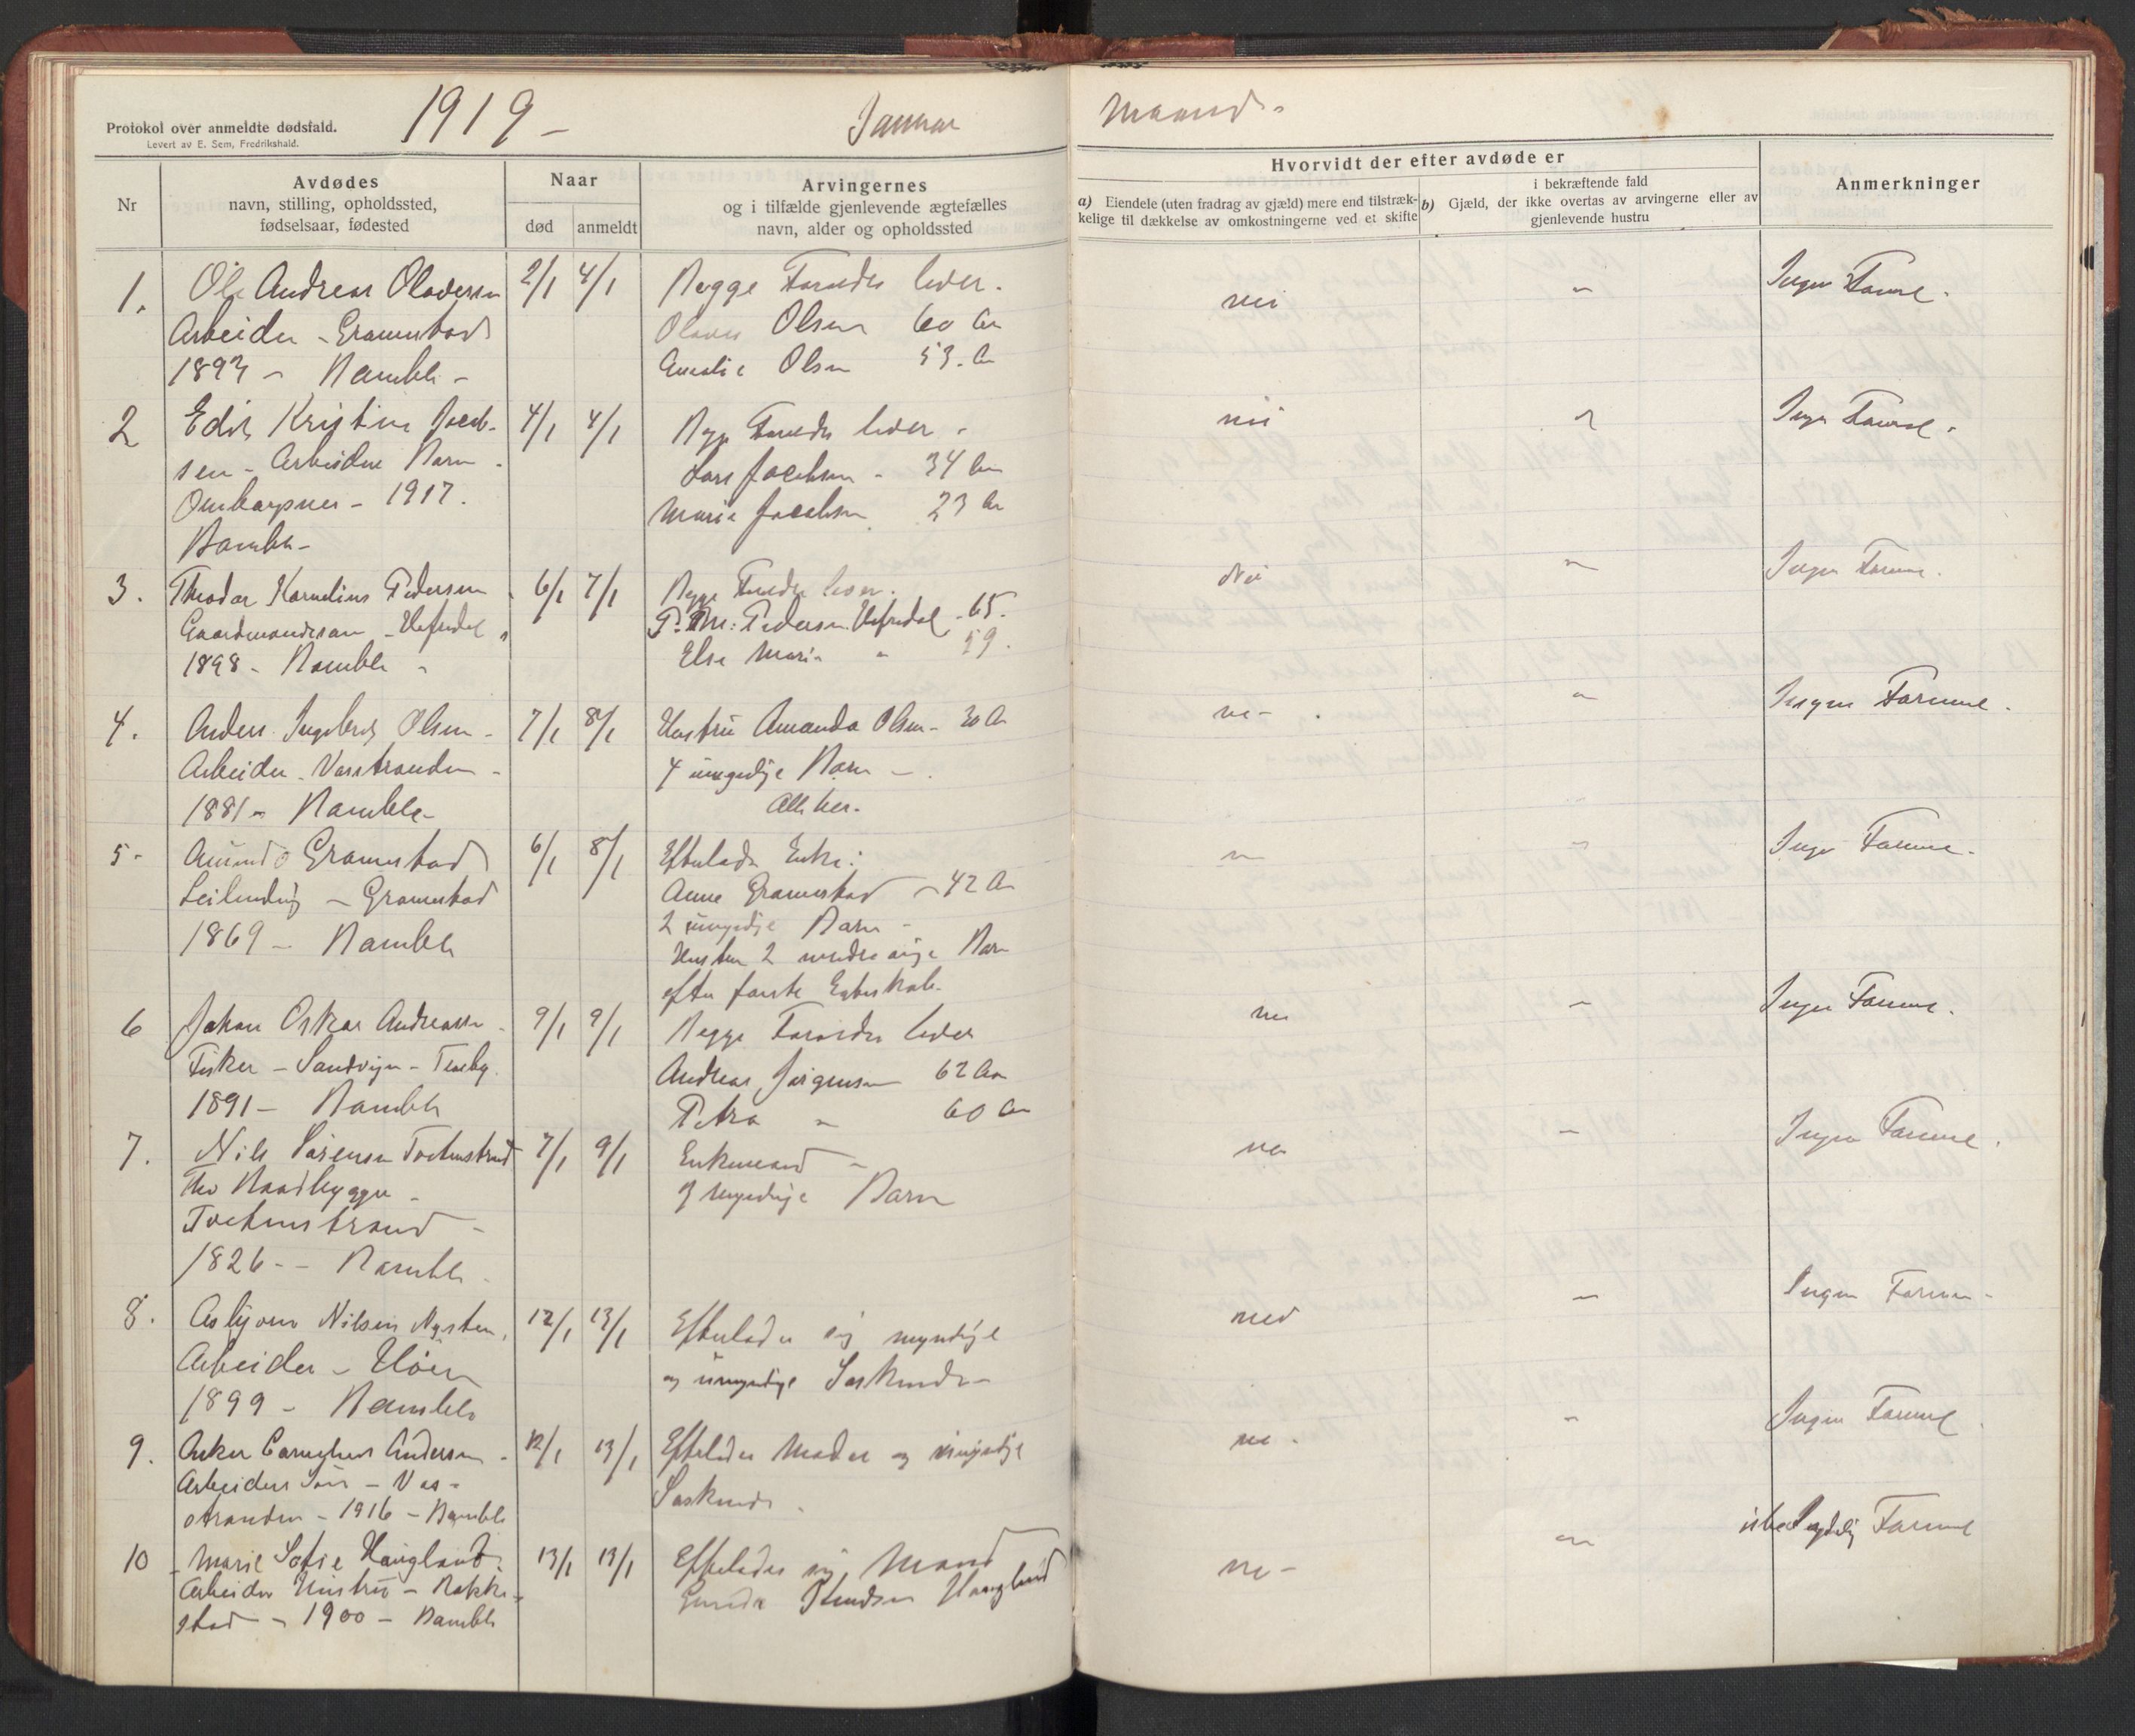 1919 -
Januar
Maaned -
Protokol over anmeldte dødsfald.
Levert av E. Sem, Fredrikshald.
Nr
Avdødes
navn, stilling, opholdssted,
fødselsaar, fødested
Naar
død
anmeldt
Arvingernes
og i tilfælde gjenlevende ægtefælles
navn, alder og opholdssted
Hvorvidt der efter avdøde er
a) Eiendele (uten fradrag av gjæld) mere end tilstræk-
kelige til dækkelse av omkostningerne ved et skifte
i bekræftende fald
b) Gjæld, der ikke overtas av arvingerne eller av
gjenlevende hustru
Anmerkninger
1.
Ole Andreas Olavesen
Arbeider - Grammstad
1893 - Bamble -
2/1 4/1
Begge Forældre lever.
Olaves Olsen 60 Aar
Amalie Olsen 53. Aar
nei
Ingen Formue.
2
Edith Kristine Jacob-
sen - Arbeider Barn -
1917.
Bamble -
4/1 4/1
Begge Forældre lever -
Lars Jacobsen - 34 Aar
Marie Jacobsen 23 Aar
nei
Ingen Formue.
3.
Theodor Kornelius Pedersen
Gaardmandssøn - Uefredal
1898 - Bamble -
6/1 7/1
Begge Forældre lever.
P. M. Pedersen Uefredal - 65.
Else Marie " 59.
Nei
Ingen Formue.
4.
Anders Ingebret Olsen -
Arbeider - Vasstranden -
1881 - Bamble -
7/1 8/1
Hustru Amanda Olsen - 30 Aar
4 umyndige Barn -
Alle her.
nei -
Ingen Formue.
5 -
Amund Grammstad
Leilending - Grammstad
1869 - Bamble
6/1 8/1
Efterlader Enke:
Anne Grammstad - 42 Aar
2 umyndige Barn -
2 mindreaarige Barn
efter første Egteskab.
Ingen Formue -
6
Johan Oskar Andreassen -
Fisker - Sandvigen -
1891 - Bamble
9/1 9/1
Begge Forældre lever
Andreas Jørgensen 62 Aar
Petra " 60 Aar
nei
Ingen Formue.
7.
Nils Sørensen Tochenstrand
Baadbygger -
Tochenstrand -
1826 - - Bamble -
7/1 9/1
Enkemand -
myndige Barn
nei
Ingen Formue.
8.
Asbjørn Nilsen Nysten,
Arbeider -
1899 - Bamble
12/1 13/1
Efterlader sig myndige
og umyndige Søskende -
nei
Ingen Formue -
9.
Anker Andersen -
Arbeiders Søn - Vas-
stranden - 1916 - Bamble
12/1 13/1
Efterlader Moder og umyndige
Søskende.
nei -
Ingen Formue
10
Marie Sofie Haugland.
Arbeider Hustru - Rakke-
stad - 1900 - Bamble
13/1 13/1
Efterlader sig Mand
Knudsen Haugland
nei -
ubetydelig Formue